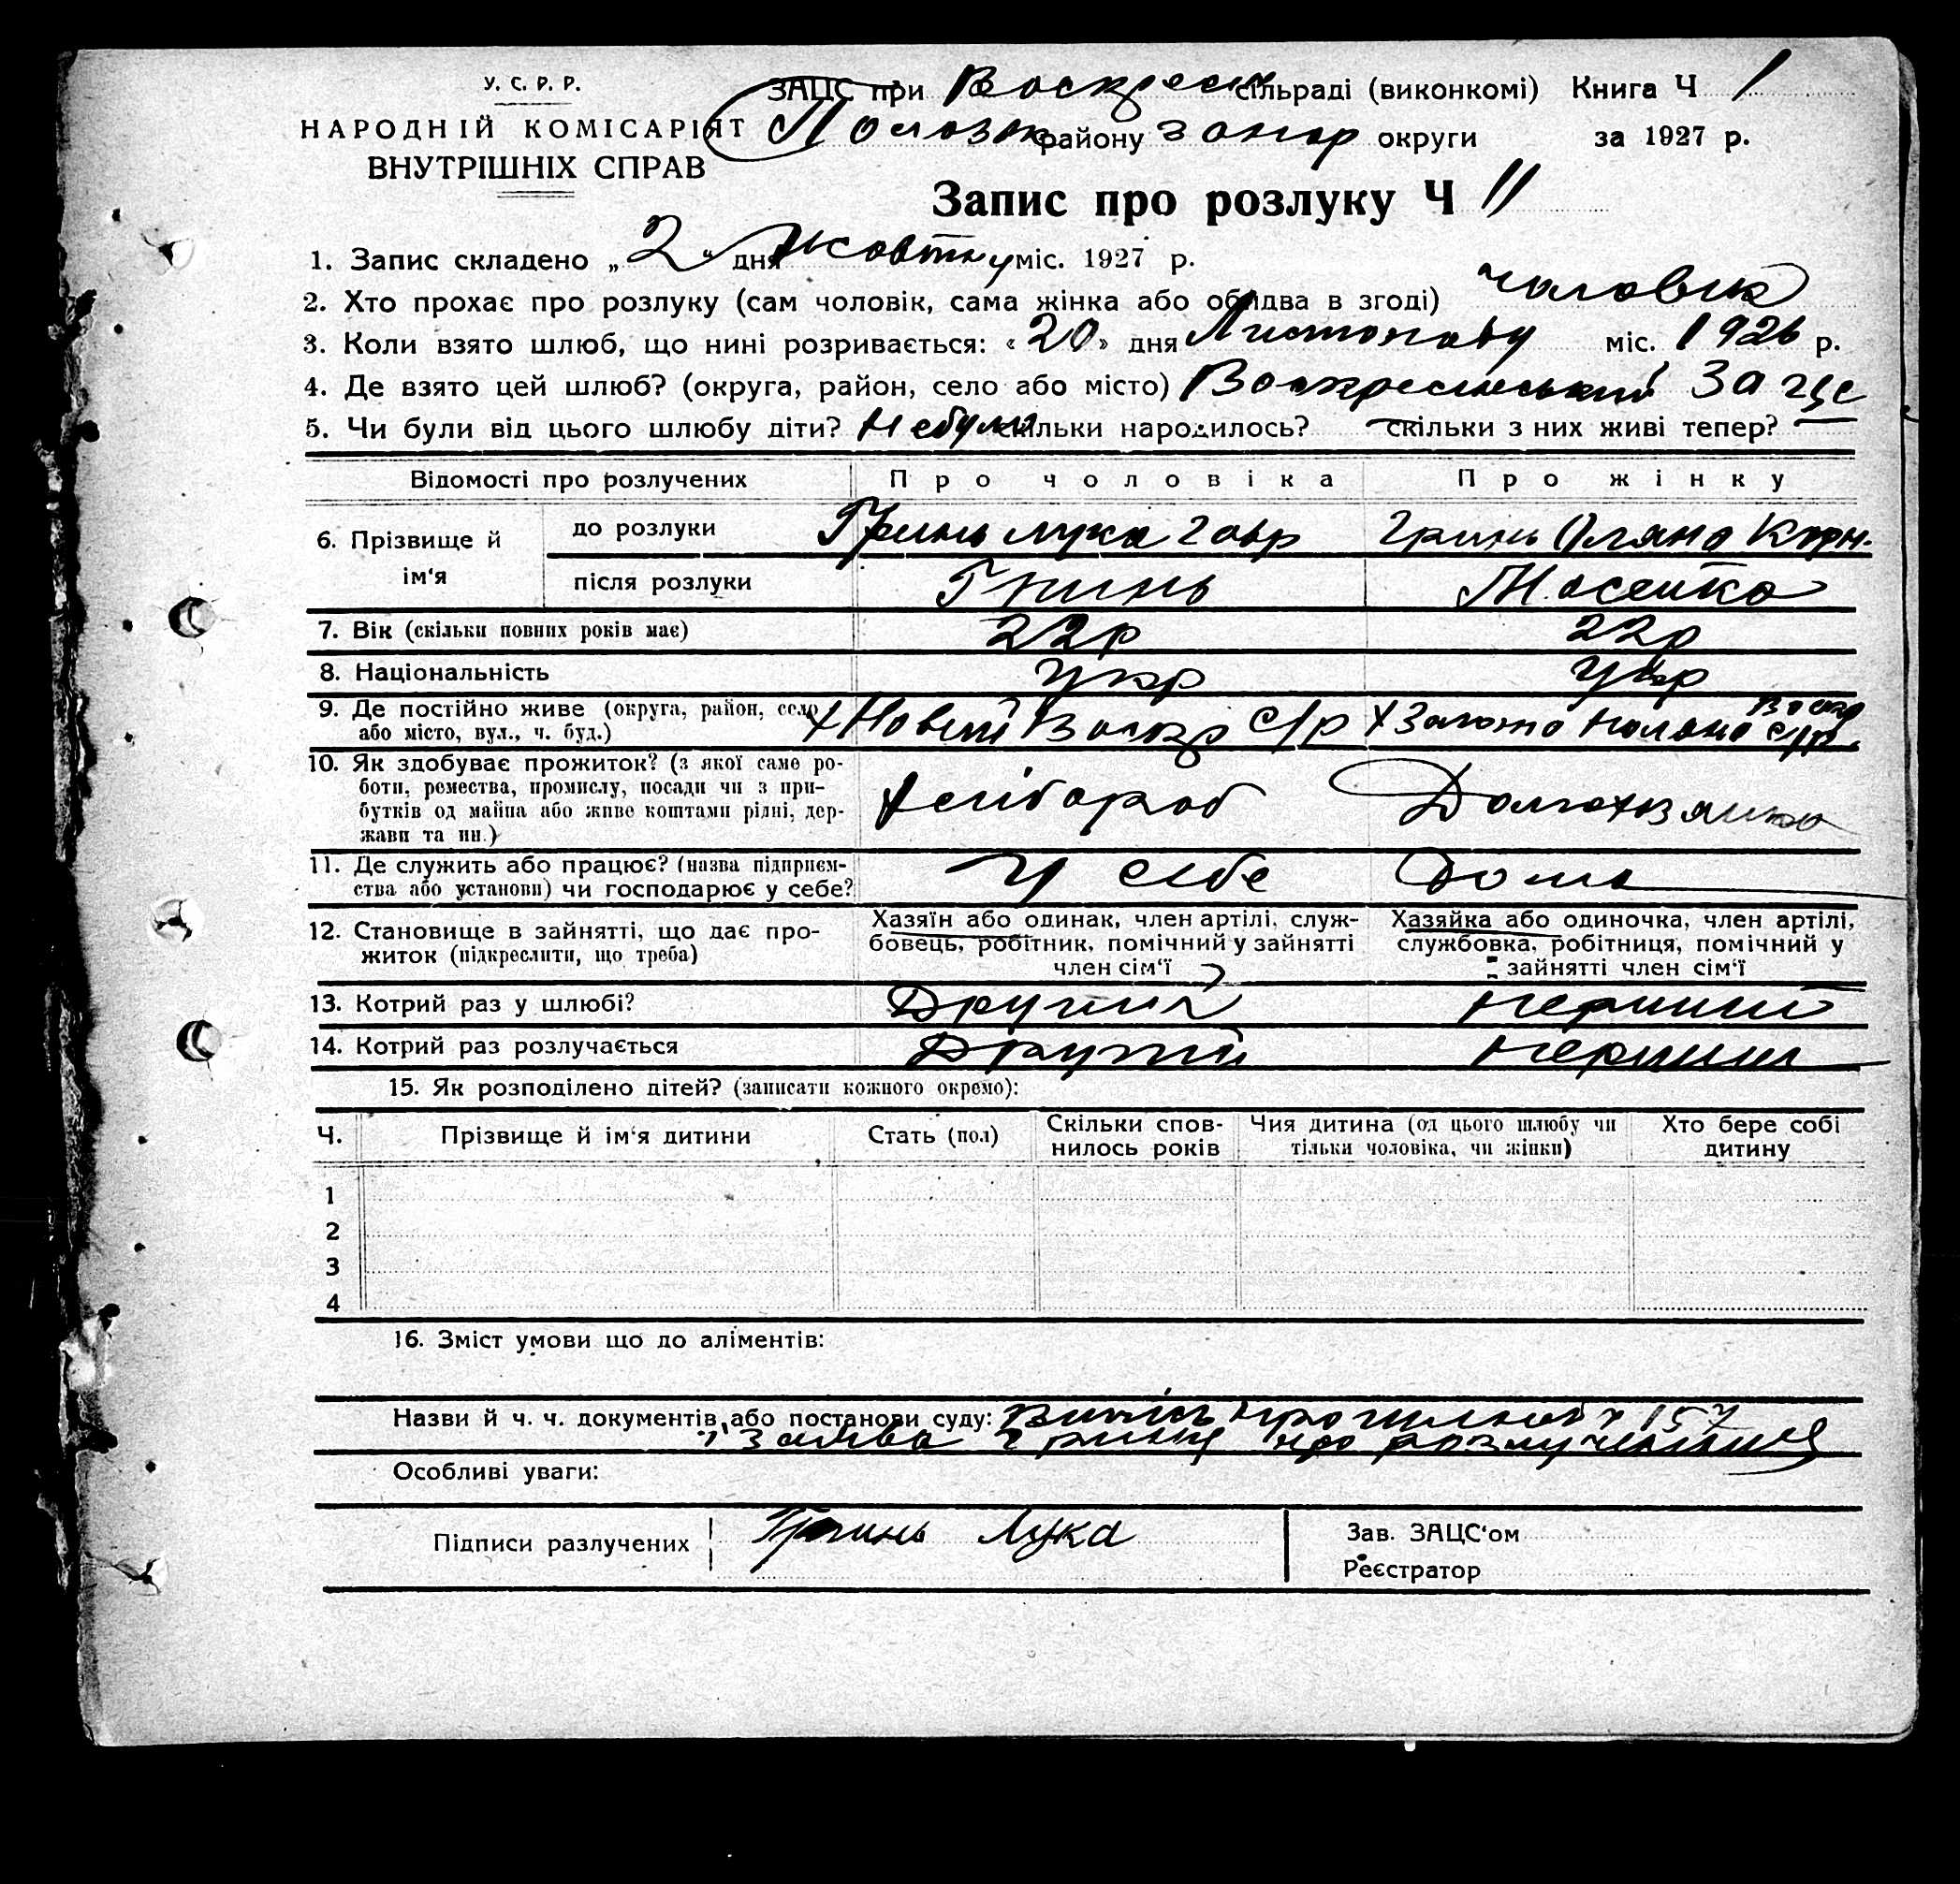 У. С. Р. Р.
НАРОДНІЙ КОМІСАРІЯТ
ВНУТРІШНІХ СПРАВ
ЗАЦС при Воскресен сільраді (виконкомі) Книга Ч 1
Пологов району Запор округи за 1927 р.
Запис про розлуку Ч 11
1. Запис складено „2" дня Жовтня міс. 1927 р.
2. Хто прохає про розлуку (сам чоловік, сама жінка або обидва в згоді) чоловік
3. Коли взято шлюб, що нині розривається: «20» дня Листопаду міс. 1926 р.
4. Де взято цей шлюб? (округа, район, село або місто) Воскресенський Загс
5. Чи були від цього шлюбу діти? Небули скільки народилось? — скільки з них живі тепер? —
Відомості про розлучених Про чоловіка Про жінку
6. Прізвище й ім'я до розлуки Гринь Лука Гавр Гринь Оляна Корн.
після розлуки Гринь Мосенко
7. Вік (скільки повних років має) 22р 22р
8. Національність Укр Укр
9. Де постійно живе (округа, район, село або місто, вул., ч. буд.) х Новий Воскр С/р х Золота Поляна Воскр с/р.
10. Як здобуває прожиток? (з якої саме ро-
боти, ремества, промислу, посади чи з при-
бутків од майна або живе коштами рідні, дер-
жави та ин.) хлібороб Домохазяйка
11. Де служить або працює? (назва підприєм-
ства або установи) чи господарює у себе? У себе Дома
12. Становище в зайнятті, що дає про-
житок (підкреслити, що треба)
Хазяїн або одинак, член артілі, служ-
бовець, робітник, помічний у зайнятті
член сім'ї
Хазяйка або одиночка, член артілі,
службовка, робітниця, помічний у
зайнятті член сім'ї
13. Котрий раз у шлюбі? Другий Перший
14. Котрий раз розлучається Другий Перший
15. Як розподілено дітей? (записати кожного окремо):
Ч. Прізвище й ім'я дитини Стать (пол) Скільки спов-
нилось років Чия дитина (од цього шлюбу чи
тільки чоловіка, чи жінки) Хто бере собі
дитину
1
2
3
4
16. Зміст умови що до аліментів:
Назви й ч. ч. документів або постанови суду: Витяг про шлюб ч 157
і Заява Гриня про розлучення
Особливі уваги:
Підписи разлучених Гринь Лука
Зав. ЗАЦС'ом
Реєстратор